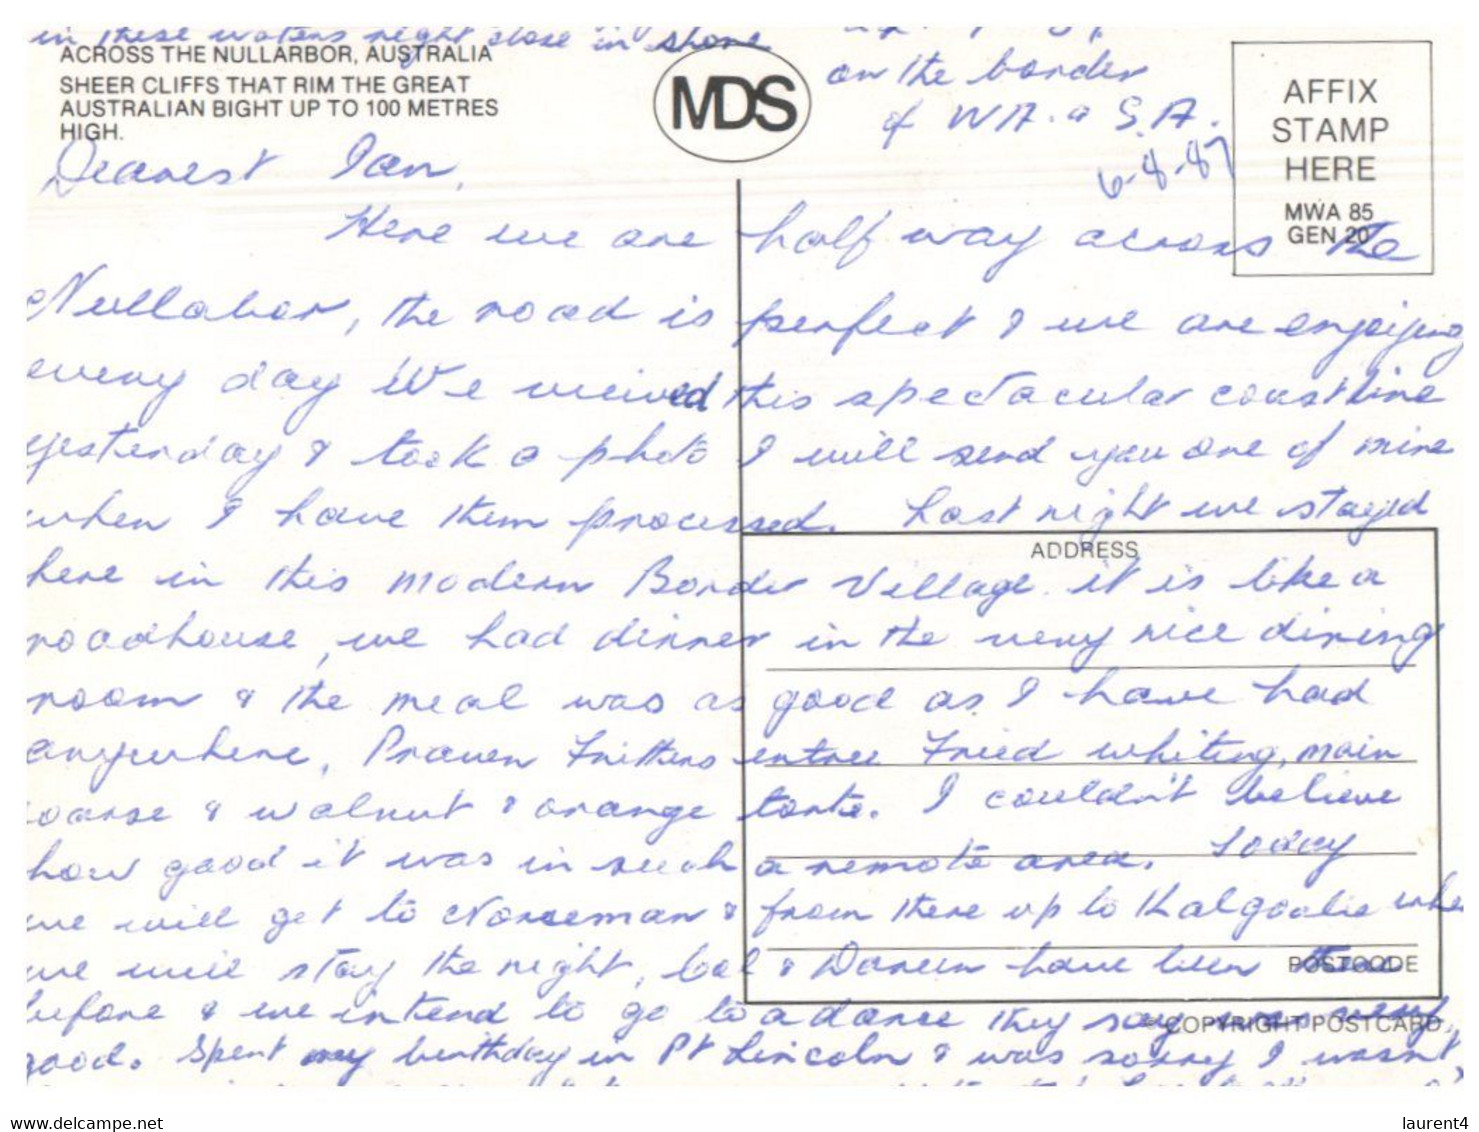 in these waters right close in shore
ACROSS THE NULLARBOR, AUSTRALIA
SHEER CLIFFS THAT RIM THE GREAT
AUSTRALIAN BIGHT UP TO 100 METRES
HIGH.
MDS
on the border
of W.A. & S.A.
6-8-87
AFFIX
STAMP
HERE
MWA 85
GEN 20
Dearest Ian,
Here we are half way across the
Nullabor, the road is perfect & we are enjoying
every day We viewed this spectacular coastline
yesterday & took a photo I will send you one of mine
when I have them processed. Last night we stayed
ADDRESS
here in this modern Border Village. it is like a
roadhouse, we had dinner in the very nice dining
room & the meal was as good as I have had
anywhere, Prawn Fritters entree Fried whiting, main
coarse & walnut & orange torte. I couldn't believe
how good it was in such a remote area. Today
we will get to Norseman & from there up to Kalgoolie whe
we will stay the night, & Doreen have been
POSTCODE
before & we intend to go to a dance they say very
© COPYRIGHT POSTCARD
good. Spent my birthday in Pt Lincoln & was sorry I wasn't
laurent4
www.delcampe.net